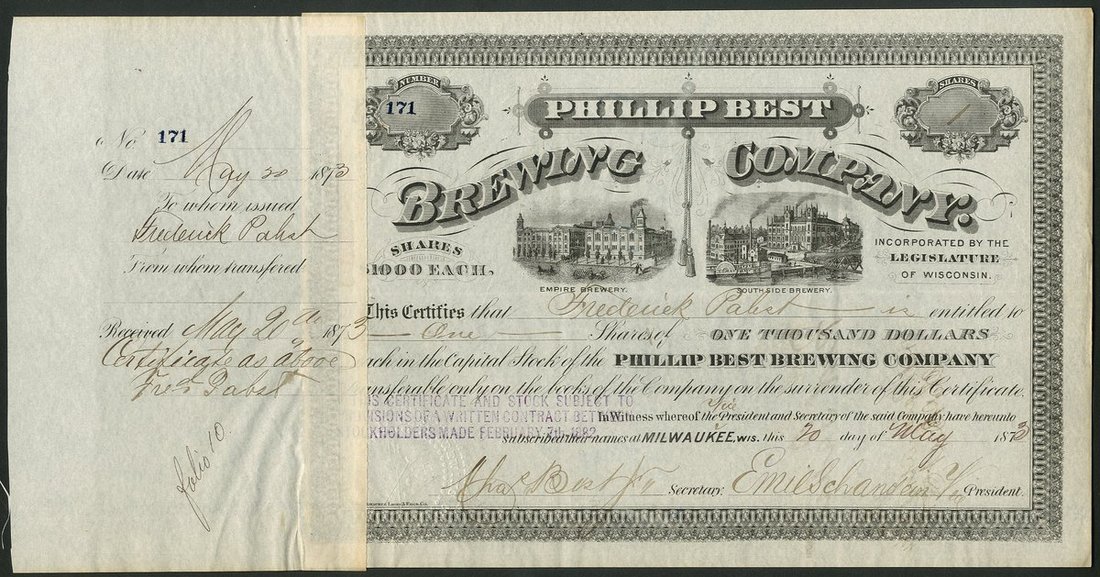 No. 171
Date May 20 1873
To whom issued
Frederick Pabst
From whom transfered
Received May 20th 1873
Certificate as above
Fred Pabst
folio 10.
NUMBER
171
SHARES
1
PHILLIP BEST
BREWING COMPANY:
SHARES
$1000 EACH,
EMPIRE BREWERY.
SOUTH SIDE BREWERY.
INCORPORATED BY THE
LEGISLATURE
OF WISCONSIN.
This Certifies that Frederick Pabst is entitled to
One Shares of ONE THOUSAND DOLLARS
each in the Capital Stock of the PHILLIP BEST BREWING COMPANY
transferable only on the books of the Company on the surrender of this Certificate.
IS CERTIFICATE AND STOCK SUBJECT TO
VISIONS OF A WRITTEN CONTRACT BETWEEN
STOCKHOLDERS MADE FEBRUARY 7th 1882
In Witness whereof the Vice President and Secretary of the said Company have hereunto
subscribed their names at MILWAUKEE, WIS. this 20 day of May 1873
Chas Best Jr Secretary. Emil Schandein V/ President.